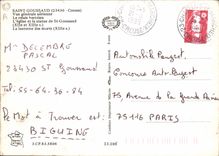 SAINT-GOUSSAUD (23430 - Creuse)
Vue générale aérienne
Le relais hertzien
L'église et la statue de St-Goussaud
(XIIe et XIIIe s.)
La lanterne des morts (XIIe s.)
Mr DELEMBRE
PASCAL
23430 St Goussaud
Tél. 55-64.36 94
Le Mot à Trouver est
BIGUINE
Automobile Peugeot
Concours Auto Peugeot
75 Avenue de la Grande Armée
75116 PARIS